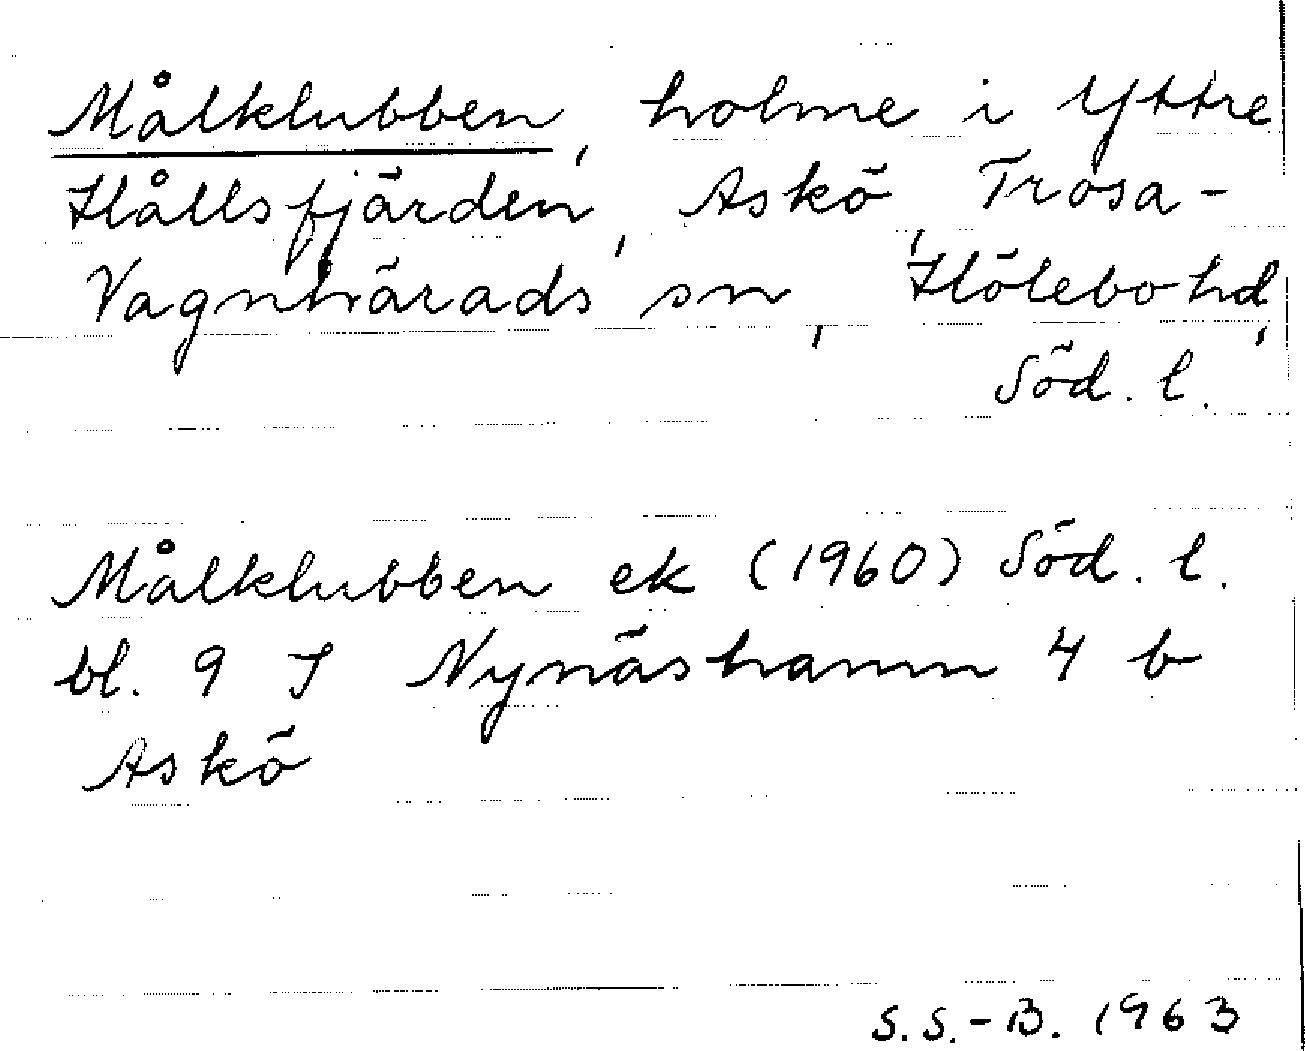 Målklubben, holme i Yttre
Hållsfjärden, Askö, Trosa-
Vagnhärads sn, Hölebo hd,
Söd. l.
Målklubben ek (1960) Söd. l.
bl. 9 I Nynäshamn 4 b
Askö
S.S.-B. 1963